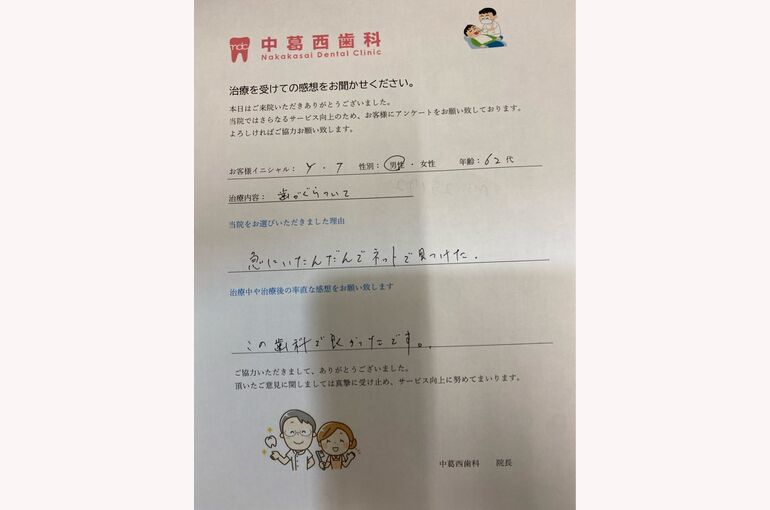 mdc
中葛西歯科
Nakakasai Dental Clinic
治療を受けての感想をお聞かせください。
本日はご来院いただきありがとうございました。
当院ではさらなるサービス向上のため、お客様にアンケートをお願い致しております。
よろしければご協力お願い致します。
お客様イニシャル： Y . T 性別： 男性 ・ 女性 年齢：62 代
治療内容： 歯がぐらついて
当院をお選びいただきました理由
急にいたんだんでネットで見つけた.
治療中や治療後の率直な感想をお願い致します
この歯科で良かったです。
ご協力いただきまして、ありがとうございました。
頂いたご意見に関しましては真摯に受け止め、サービス向上に努めてまいります。
中葛西歯科 院長